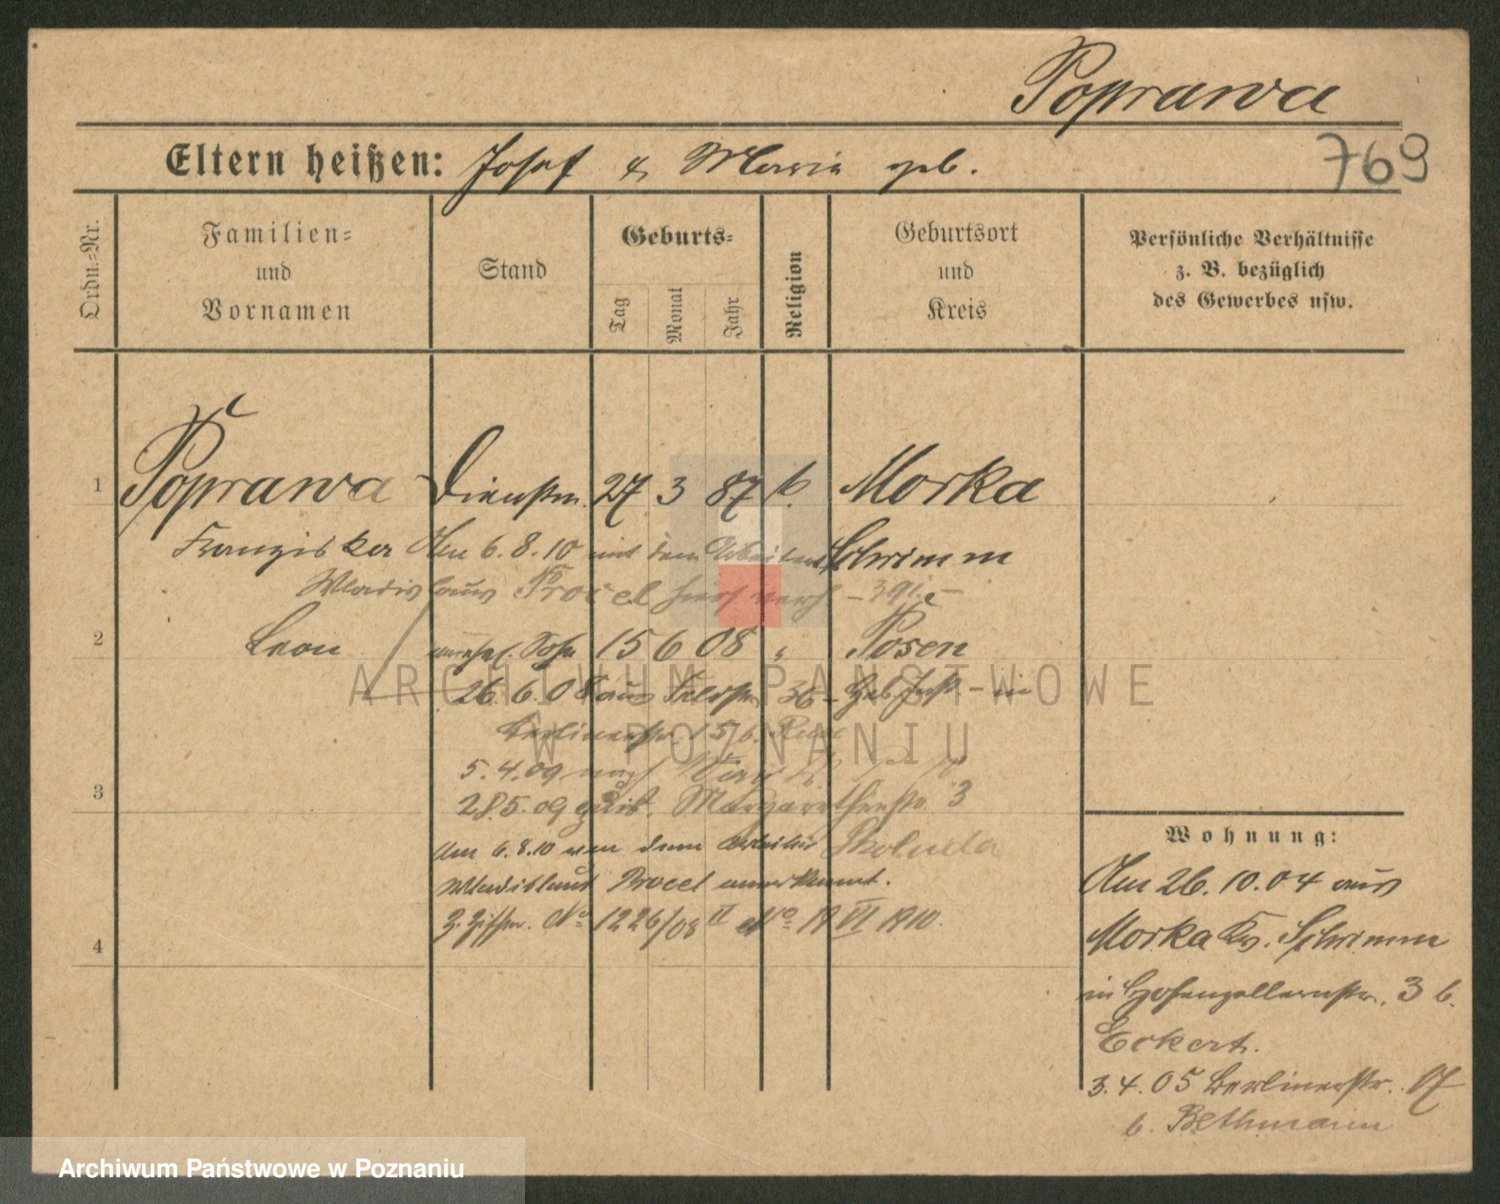 Poprawa
Eltern heißen: Josef & Maria geb.
769
Ordn.-Nr.
Familien-
und
Vornamen
Stand
Geburts-
Tag
Monat
Jahr
Religion
Geburtsort
und
Kreis
Persönliche Verhältnisse
z. B. bezüglich
des Gewerbes usw.
1 Poprawa Dienstm. 27. 3 87 k. Morka
Franziska Am 6.8.10 mit dem Arbeiter Schrimm
Wladislaus Procel hier verh
2 Leon unehel. Sohn 15 6 08 " Posen
26.6.08 aus
Berlinerstr. 15/16.
5.4.09 nach
3
28.5.09 zurück. Margarethenstr. 3
Am 6.8.10 von dem Arbeiter Skoluda
Wladislaus Procel anerkannt.
No 1226/08 II No 19 VI 1910.
4
Wohnung:
Am 26.10.04 aus
Morka Kr. Schrimm
in Hohenzollernstr. 3 b.
Eckert.
3.4.05 Berlinerstr. 17
b. Bethmann
ARCHIWUM PAŃSTWOWE
W POZNANIU
Archiwum Państwowe w Poznaniu